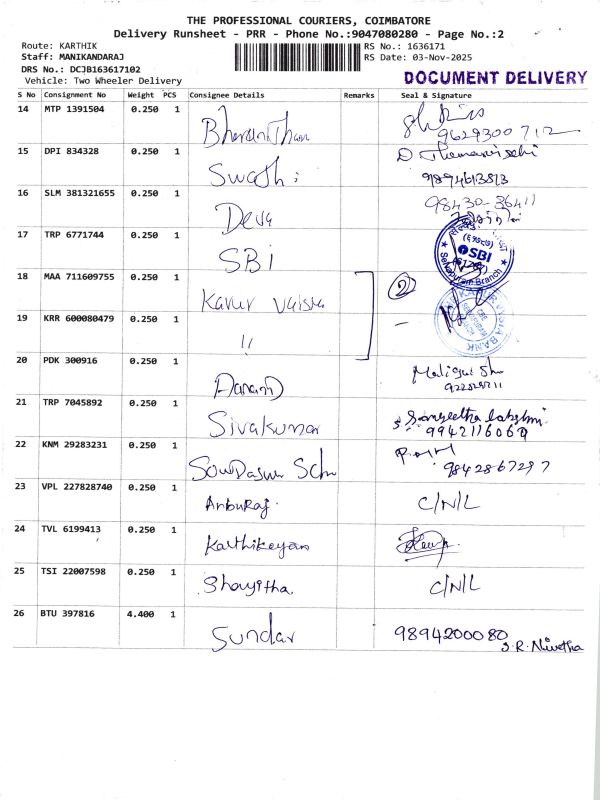 THE PROFESSIONAL COURIERS, COIMBATORE
Delivery Runsheet - PRR - Phone No.:9047080280 - Page No.:2
Route: KARTHIK
Staff: MANIKANDARAJ
DRS No.: DCJB163617102
Vehicle: Two Wheeler Delivery
RS No.: 1636171
RS Date: 03-Nov-2025
DOCUMENT DELIVERY
S No Consignment No Weight PCS Consignee Details Remarks Seal & Signature
14 MTP 1391504 0.250 1
9629300712
15 DPI 834328 0.250 1 Swathi
9894613813
16 SLM 381321655 0.250 1 Deva 98430-36411
17 TRP 6771744 0.250 1 SBI SBI
18 MAA 711609755 0.250 1 Karur Vaisya 2
19 KRR 600080479 0.250 1 11 VYSYA BANK
20 PDK 300916 0.250 1
21 TRP 7045892 0.250 1 Sivakumar Sangeetha lakshmi
9942116069
22 KNM 29283231 0.250 1
9842867297
23 VPL 227828740 0.250 1 Anburaj. C/N/L
24 TVL 6199413 0.250 1 Karthikeyan
25 TSI 22007598 0.250 1 C/N/L
26 BTU 397816 4.400 1 Sundar 9894200080
S.R. Nivetha